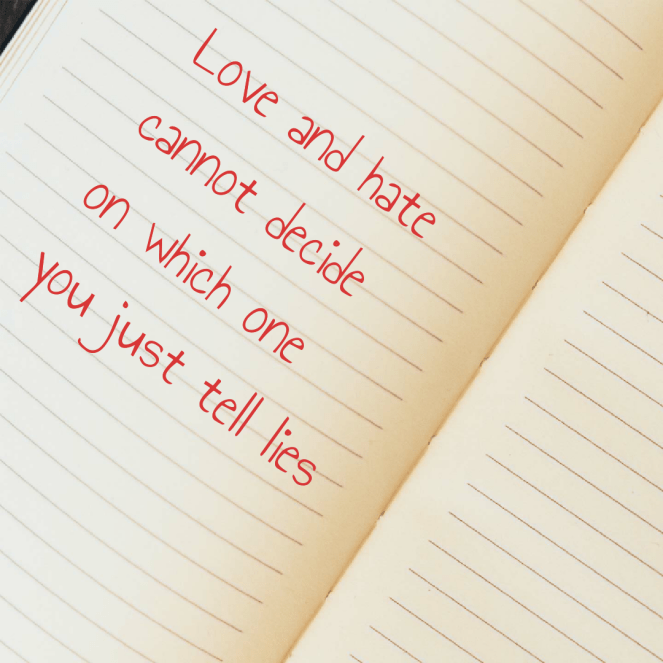 Love and hate
cannot decide
on which one
you just tell lies